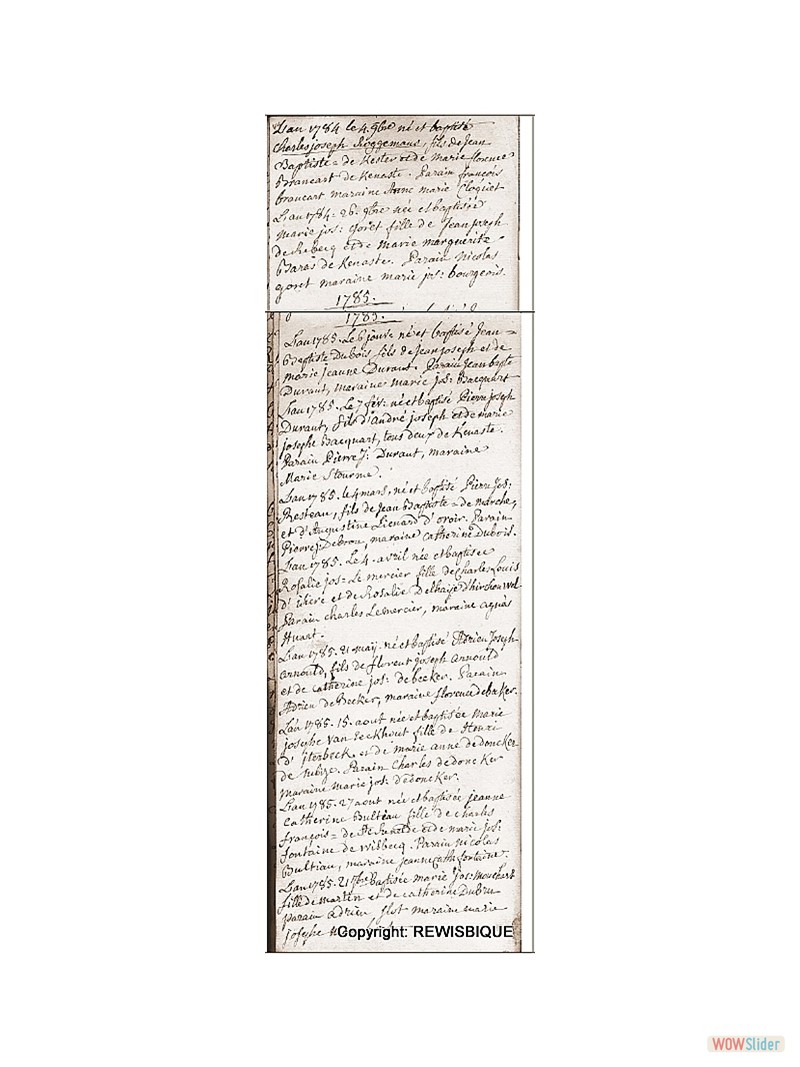 L'an 1784 le 4. 9bre né et baptisé
Charles joseph Roggemans, fils de Jean
Baptiste = de Kester et de Marie florence
Brancart de Kenaste. Parain françois
brancart maraine Anne marie Cloquet
L'an 1784. 26. 9bre née et baptisée
marie jos: goret fille de Jean joseph
de Rebecq et de Marie marguerite
Baras de Kenaste. Parain Nicolas
goret maraine marie jos: bourgeois.
1785.
1785.
L'an 1785. Le 6 janvr né et baptisé Jean =
Baptiste Dubois fils de Jean joseph et de
marie jeanne Durant. Parain Jean bapte
Durant, maraine marie jos: Bacquart
L'an 1785. Le 7 fevr: né et baptisé Pierre joseph
Durant, fils d'André joseph et de marie
josephe Bacquart, tous deux de Kenaste.
Parain Pierre J: Durant, maraine
Marie Stourme.
L'an 1785. le 4 mars, né et baptisé Pierre jos:
Resteau, fils de Jean Baptiste = de marche,
et d'Augustine Lienard d'oroir. Parain
Pierre J: Debrou, maraine catherine Dubois.
L'an 1785. Le 4. avril née et baptisée
Rosalie jos = Le mercier fille de Charles Louis
d' et de Rosalie Delhaije d'
Parain charles Lemercier, maraine agnès
Huart.
L'an 1785. 21 maij. né et baptisé Adrien Joseph
arnould, fils de florent joseph arnould
et de catherine jos: de becker. Parain
Adrien de Becker, maraine florence debeker.
L'an 1785. 15. aout née et baptisée Marie
josephe van Eeckhout fille de Henri
d' jterbeck et de marie anne dedoncker
de tubize. Parain Charles dedoncker
maraine Marie jos: dedoncker.
L'an 1785. 27 aout née et baptisée jeanne
catherine Bulteau fille de charles
françois = de et de marie jos:
fontaine de wisbecq. Parain Nicolas
Bultiau, maraine jeanne cath: fontaine.
L'an 1785. 21 7bre Baptisée marie jos: mouchart
fille de martin et de catherine Dubru
parain adrien, flot maraine marie
josephe
Copyright: REWISBIQUE
WOWSlider